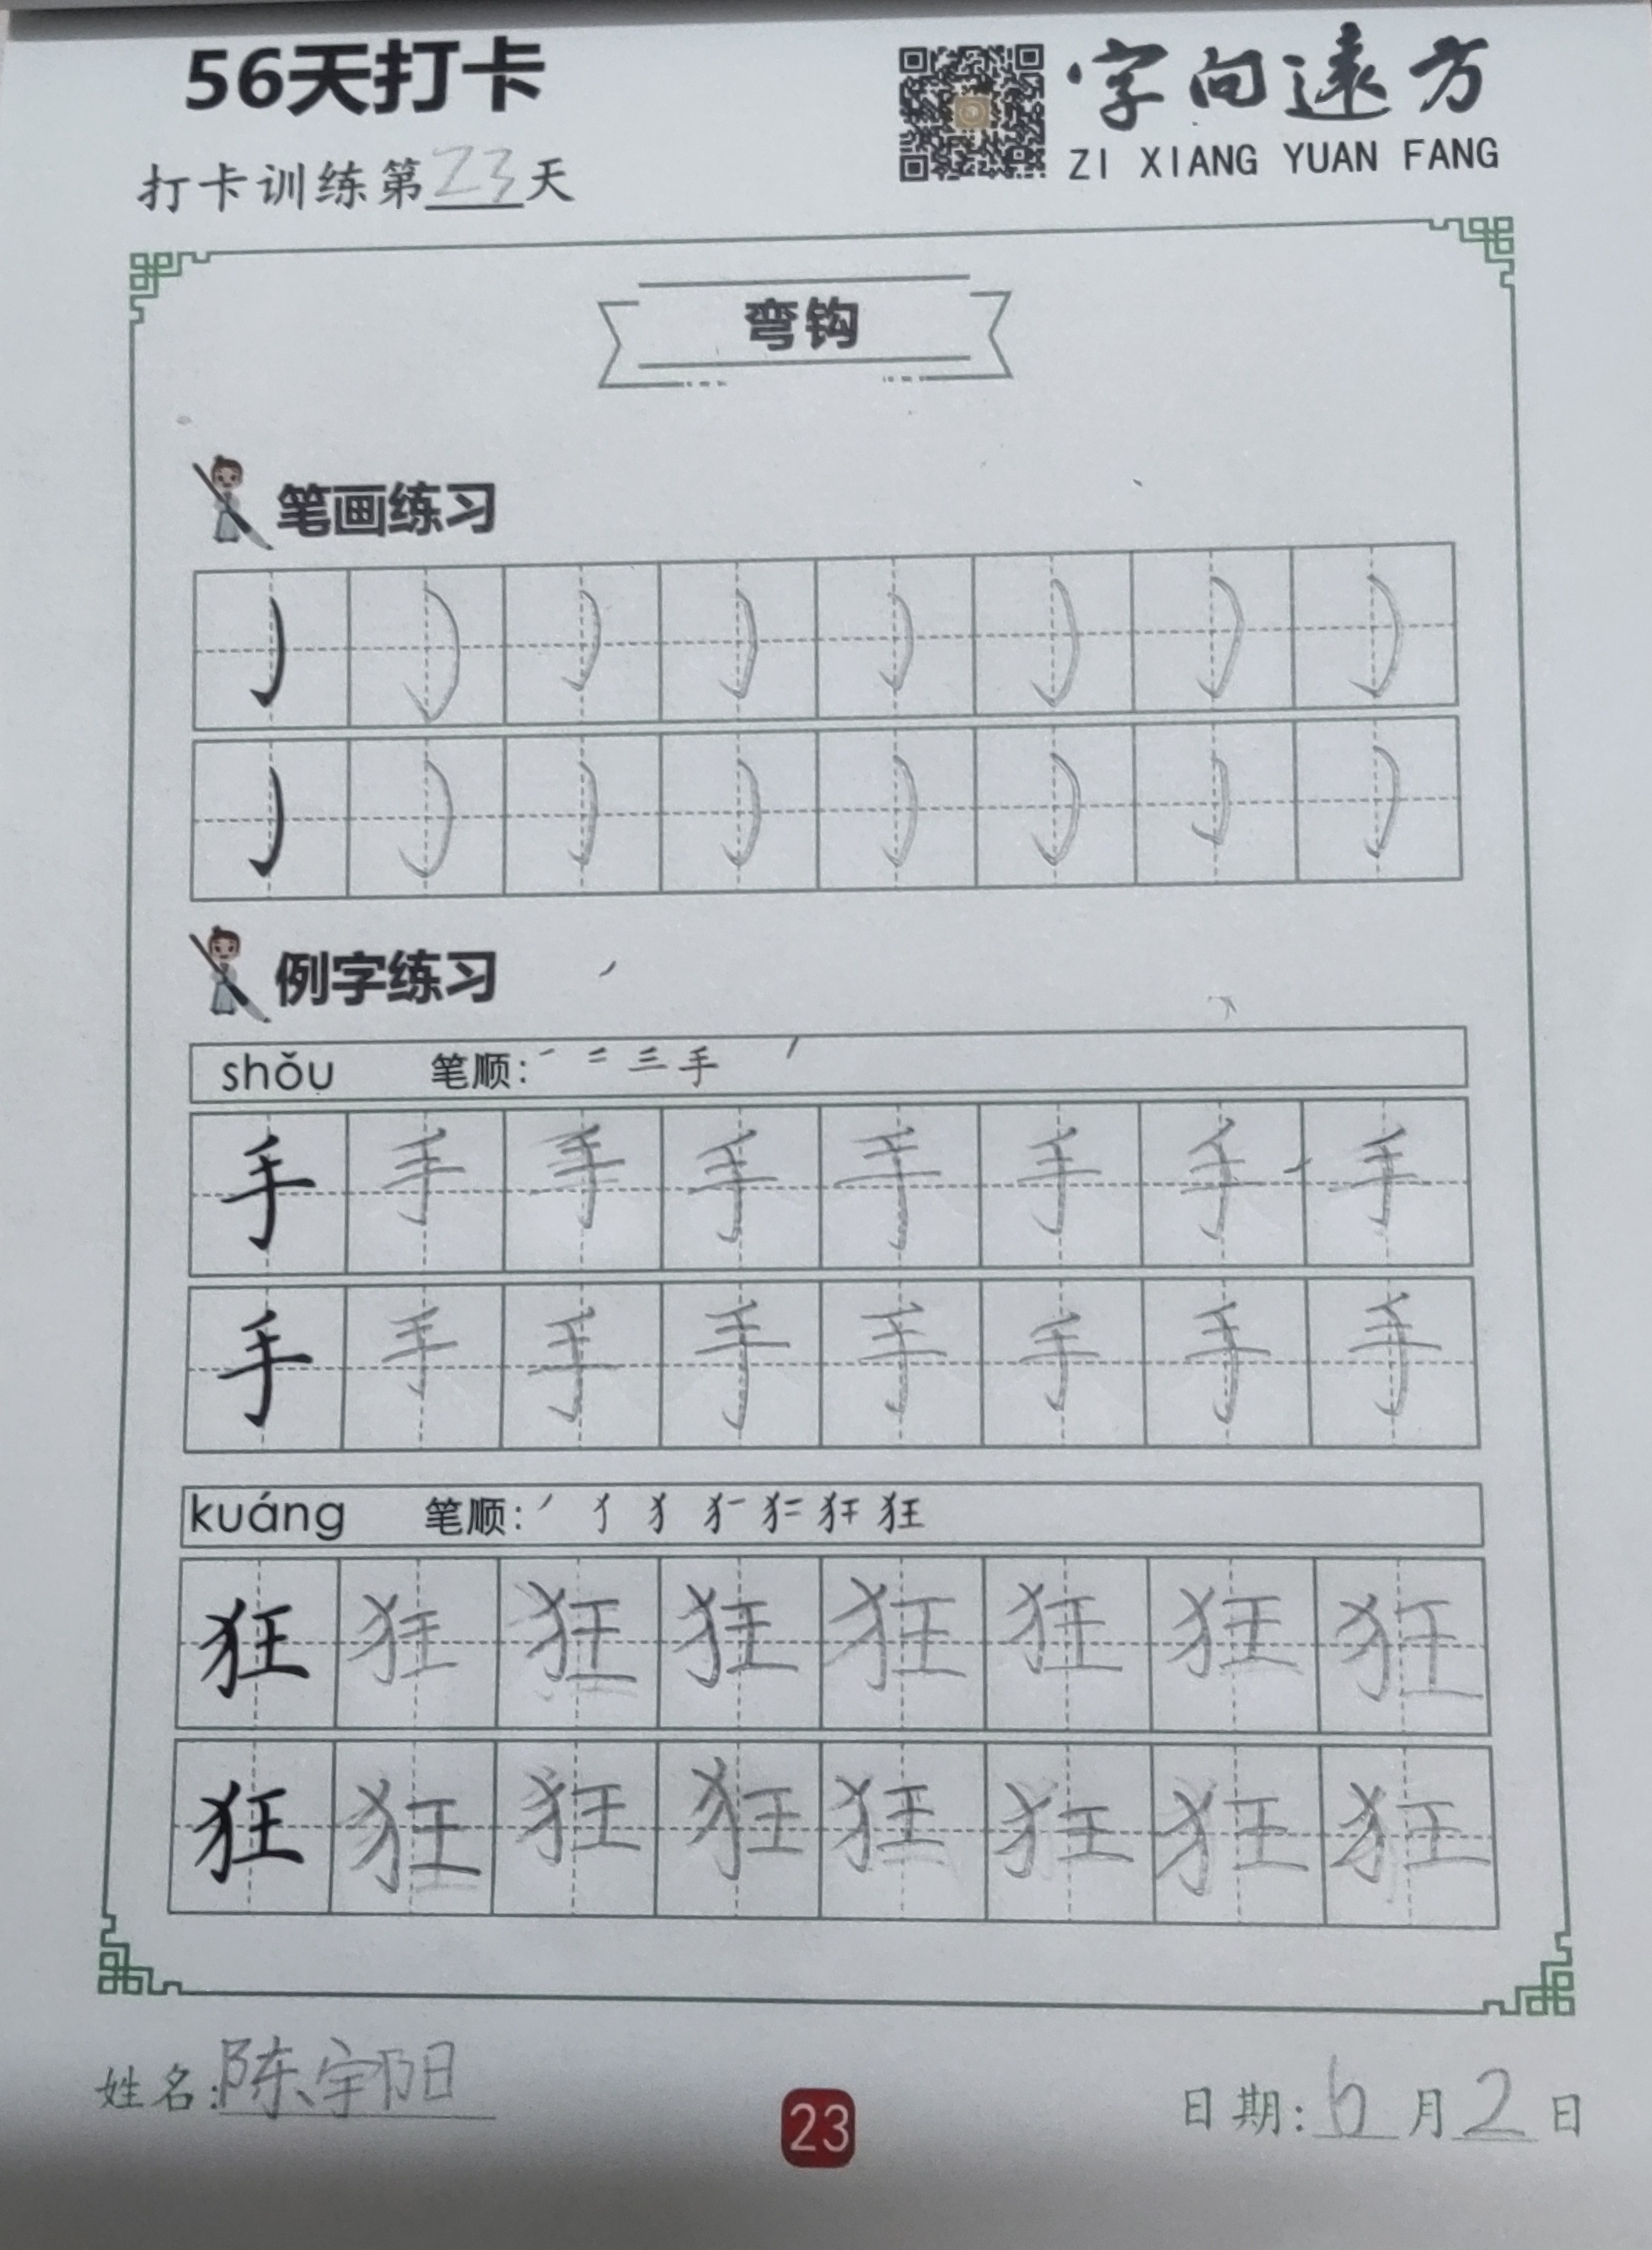 56天打卡
字向遠方
ZI XIANG YUAN FANG
打卡训练第23天
弯钩
笔画练习
例字练习
shǒu 笔顺: 一 二 三 手
手 手 手 手 手 手 手 手
手 手 手 手 手 手 手 手
kuáng 笔顺: 丿 犭 狂
狂 狂 狂 狂 狂 狂 狂 狂
狂 狂 狂 狂 狂 狂 狂 狂
姓名:陈宇阳
23
日期:6月2日